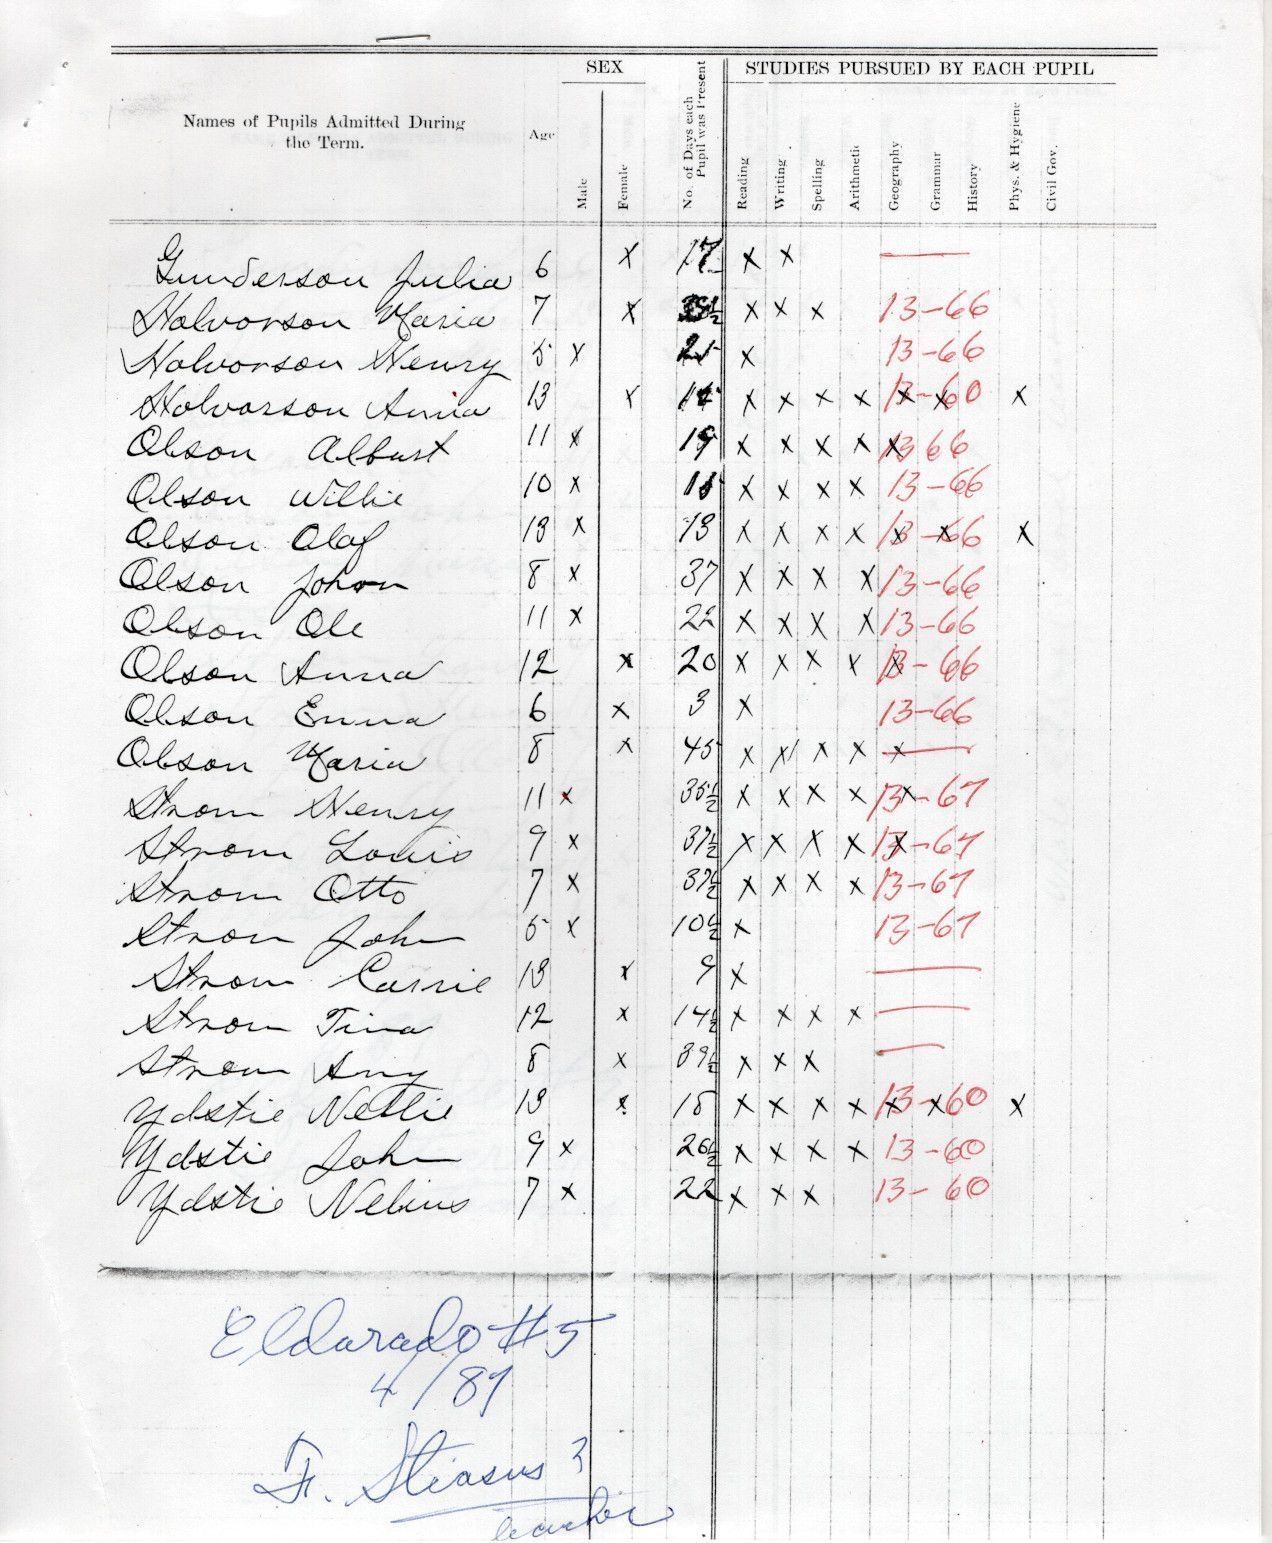 SEX
STUDIES PURSUED BY EACH PUPIL
Names of Pupils Admitted During
the Term.
Age
Male
Female
No. of Days each
Pupil was Present
Reading
Writing
Spelling
Arithmetic
Geography
Grammar
History
Phys. & Hygiene
Civil Gov.
Gunderson Julia 6 x 17 x x
Halvorson Maria 7 x x x x 13-66
Halvorson Henry 5 x x 13-66
Halvorson Anna 13 x x x x x x x 13-60 x
Olson Albert 11 x 19 x x x x x 13 66
Olson Willie 10 x x x x x 13-66
Olson Olaf 13 x 13 x x x x x x 13-66 x
Olson Johan 8 x 37 x x x x 13-66
Olson Ole 11 x 22 x x x x 13-66
Olson Anna 12 x 20 x x x x x 13-66
Olson Emma 6 x 3 x 13-66
Olson Maria 8 x 45 x x x x x
Strom Henry 11 x 35½ x x x x x 13-67
Strom Louis 9 x 37½ x x x x x 13-67
Strom Otto 7 x 37½ x x x x 13-67
Strom John 5 x 10½ x 13-67
Strom Carrie 13 x 9 x
Strom Tina 12 x 14½ x x x x
Strom Amy 8 x 39½ x x x
Ydstie Nettie 13 x 15 x x x x x x 13-60 x
Ydstie John 9 x 26½ x x x x 13-60
Ydstie Nelius 7 x 22 x x x 13-60
Eldorado #5
4/89
Fr. Stiasus ?
teacher